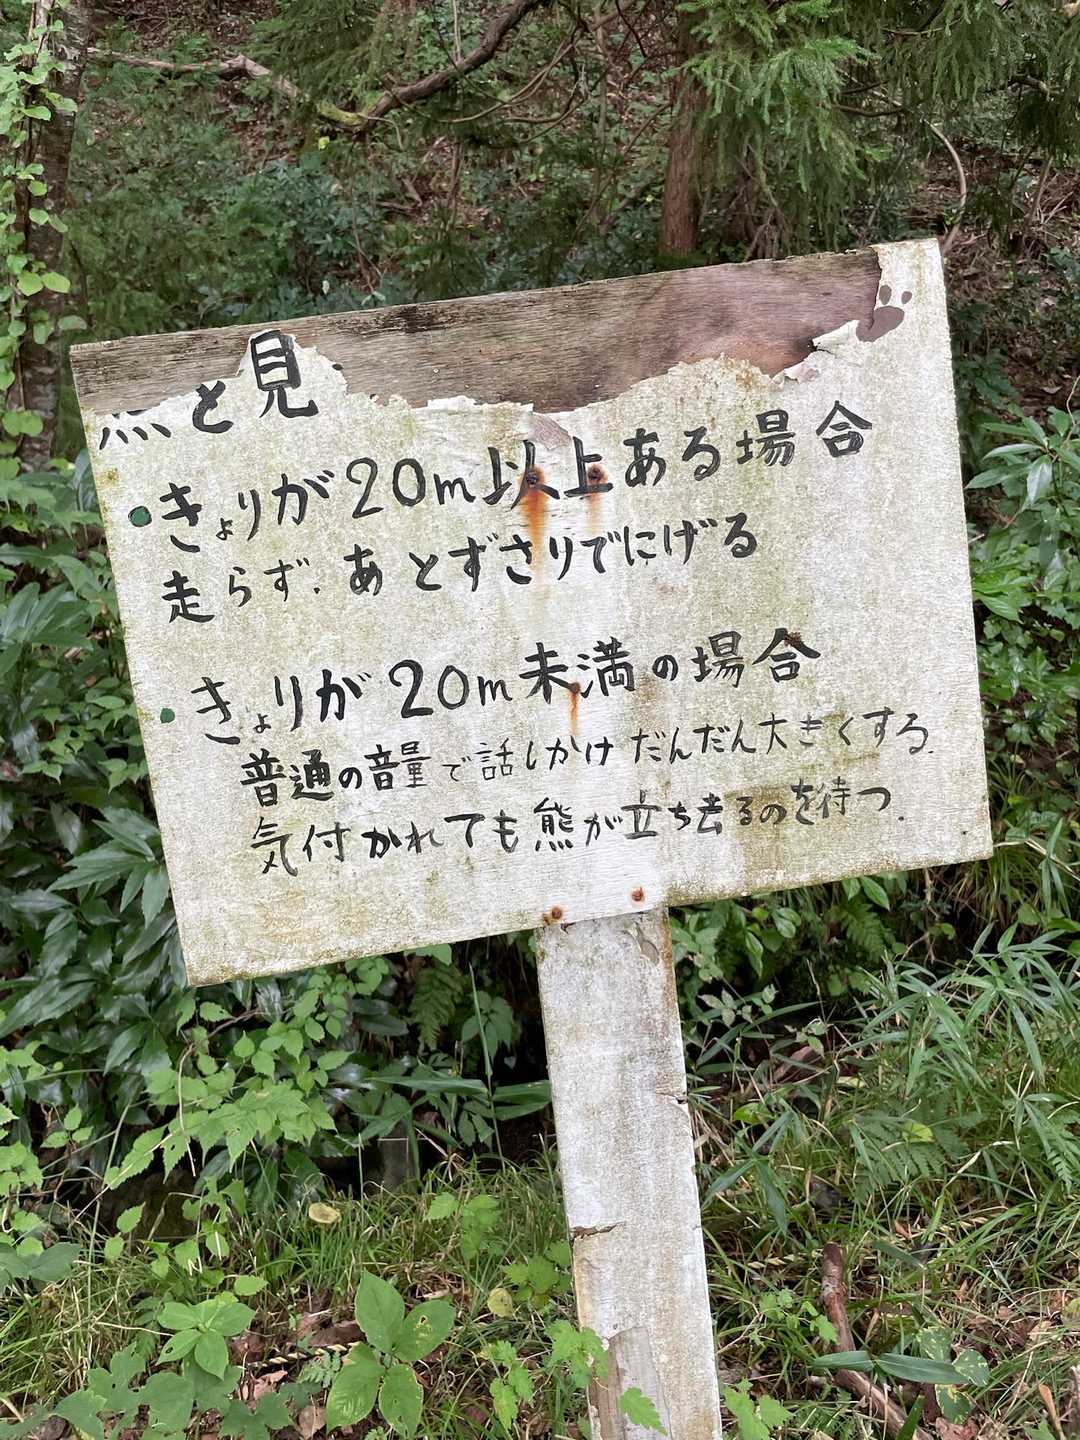 熊と見
・きょりが20m以上ある場合
走らず、あとずさりでにげる
・きょりが20m未満の場合
普通の音量で話しかけだんだん大きくする。
気付かれても熊が立ち去るのを待つ。